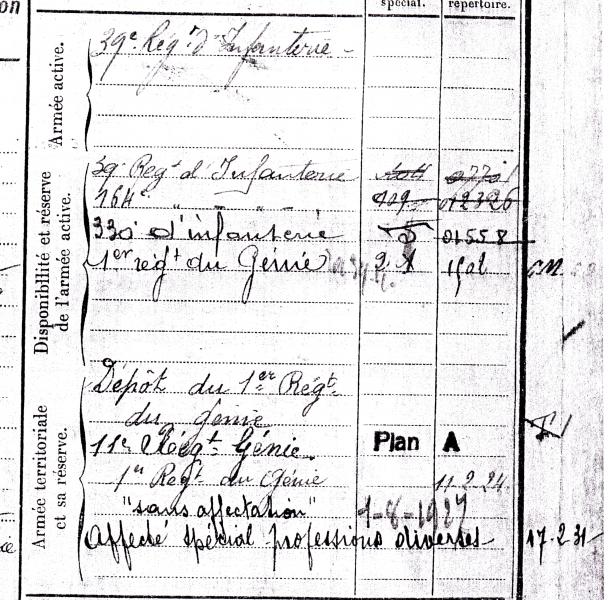 spécial. répertoire.
Armée active.
39e Régt d'Infanterie
Disponibilité et réserve
de l'armée active.
39 Regt d'Infanterie
164e " " " 409 012326
330 d'infanterie 01558
1er regt du Génie
Armée territoriale
et sa réserve.
Dépôt du 1er Régt
du génie
11e Régt Génie. Plan A
1er Regt du Génie 11.2.24.
"sans affectation" 1-8-1927
Affecté spécial professions diverses 17.2.31